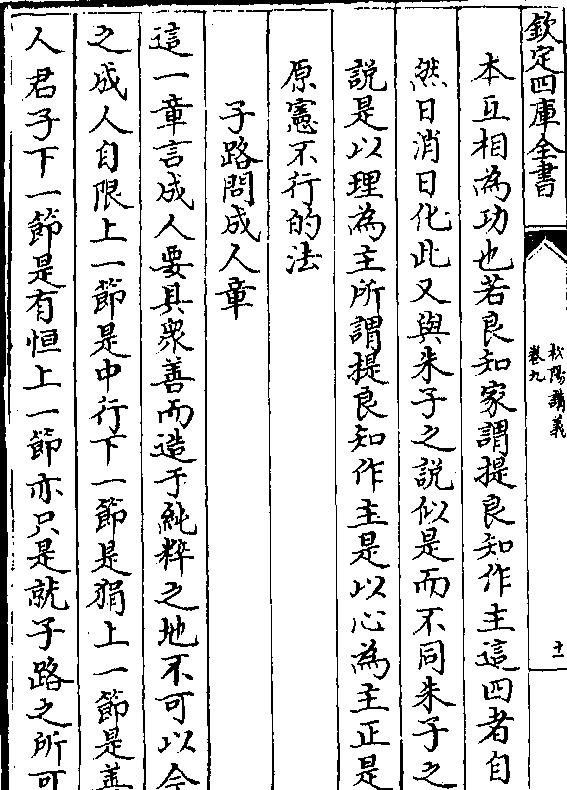 欽定四庫全書
松陽講義
卷九
十一
本互相為功也若良知家謂提良知作主這四者自
然日消日化此又與朱子之說似是而不同朱子之
說是以理為主所謂提良知作主是以心為主正是
原憲不行的法
子路問成人章
這一章言成人要具衆善而造于純粹之地不可以今
之成人自限上一節是中行下一節是狷上一節是善
人君子下一節是有恒上一節亦只是就子路之所可